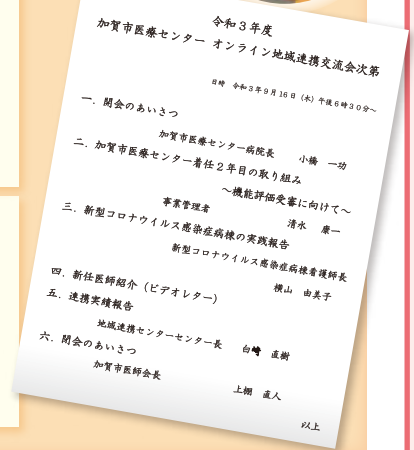 令和３年度
加賀市医療センター オンライン地域連携交流会次第
日時 令和３年９月１６日（木）午後６時３０分～
一．開会のあいさつ
加賀市医療センター病院長 小橋 一功
二．加賀市医療センター着任２年目の取り組み
～機能評価受審に向けて～
事業管理者 清水 康一
三．新型コロナウイルス感染症病棟の実践報告
新型コロナウイルス感染症病棟看護師長
横山 由美子
四．新任医師紹介（ビデオレター）
五．連携実績報告
地域連携センターセンター長 白﨑 直樹
六．閉会のあいさつ
加賀市医師会長 上棚 直人
以上